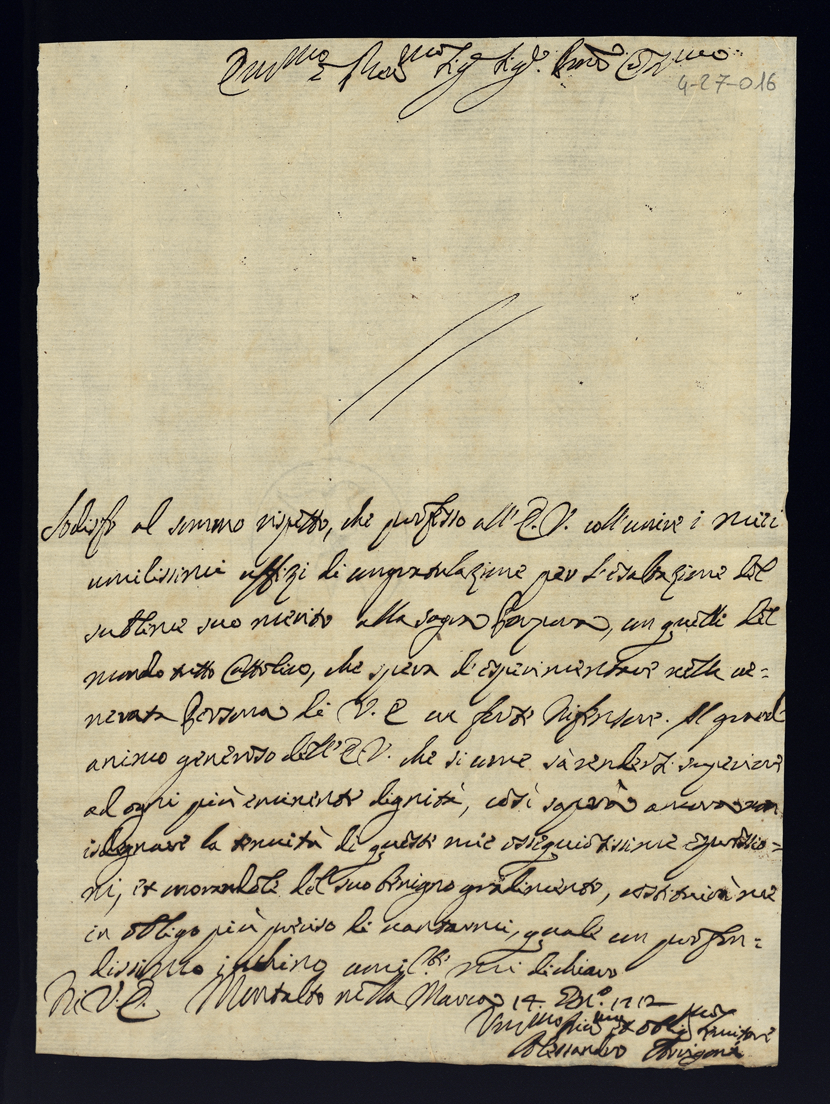 Em.mo e Rev.mo Sig.r Sig.r P.ron Col.mo
4-27-016
Sodisfo al sommo rispetto, che professo all'E.V. coll'unire i miei
umilissimi uffizi di congratulazione per l'esaltazione del
sublime suo merito alla sagra Porpora, con quelli del
mondo tutto Cattolico, che spera d'esperimentare nella ve=
nerata Persona di V.E. un forte Difensore. Il grand
animo generoso dell'E.V. che si come sà rendersi superiore
ad ogni più eminente dignità, così saprà ancora non
isdegnare la tenuità di queste mie ossequiosissime espressio=
ni, et onorandole del suo benigno gradimento, costituirà me
in obligo più preciso di vantarmi, quale con profon=
dissimo inchino umil.te mi dichiaro
Di V.E. Montalto nella Marca 14 1712
Um.mo et oblig.mo Servitore
Alessandro